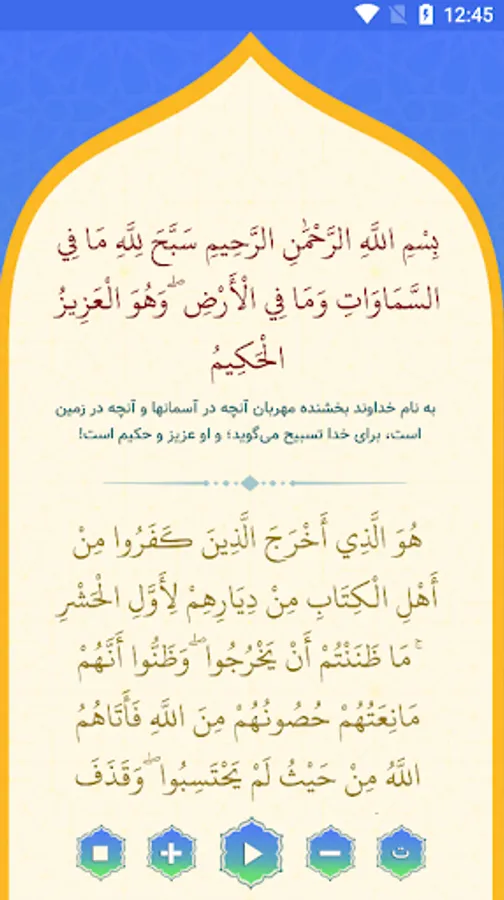 12:45
بِسْمِ اللَّهِ الرَّحْمَٰنِ الرَّحِيمِ سَبَّحَ لِلَّهِ مَا فِي
السَّمَاوَاتِ وَمَا فِي الْأَرْضِ ۖ وَهُوَ الْعَزِيزُ
الْحَكِيمُ
به نام خداوند بخشنده مهربان آنچه در آسمانها و آنچه در زمین
است، برای خدا تسبیح می‌گوید؛ و او عزیز و حکیم است!
هُوَ الَّذِي أَخْرَجَ الَّذِينَ كَفَرُوا مِنْ
أَهْلِ الْكِتَابِ مِنْ دِيَارِهِمْ لِأَوَّلِ الْحَشْرِ
ۚ مَا ظَنَنْتُمْ أَنْ يَخْرُجُوا ۖ وَظَنُّوا أَنَّهُمْ
مَانِعَتُهُمْ حُصُونُهُمْ مِنَ اللَّهِ فَأَتَاهُمُ
اللَّهُ مِنْ حَيْثُ لَمْ يَحْتَسِبُوا ۖ وَقَذَفَ
ت